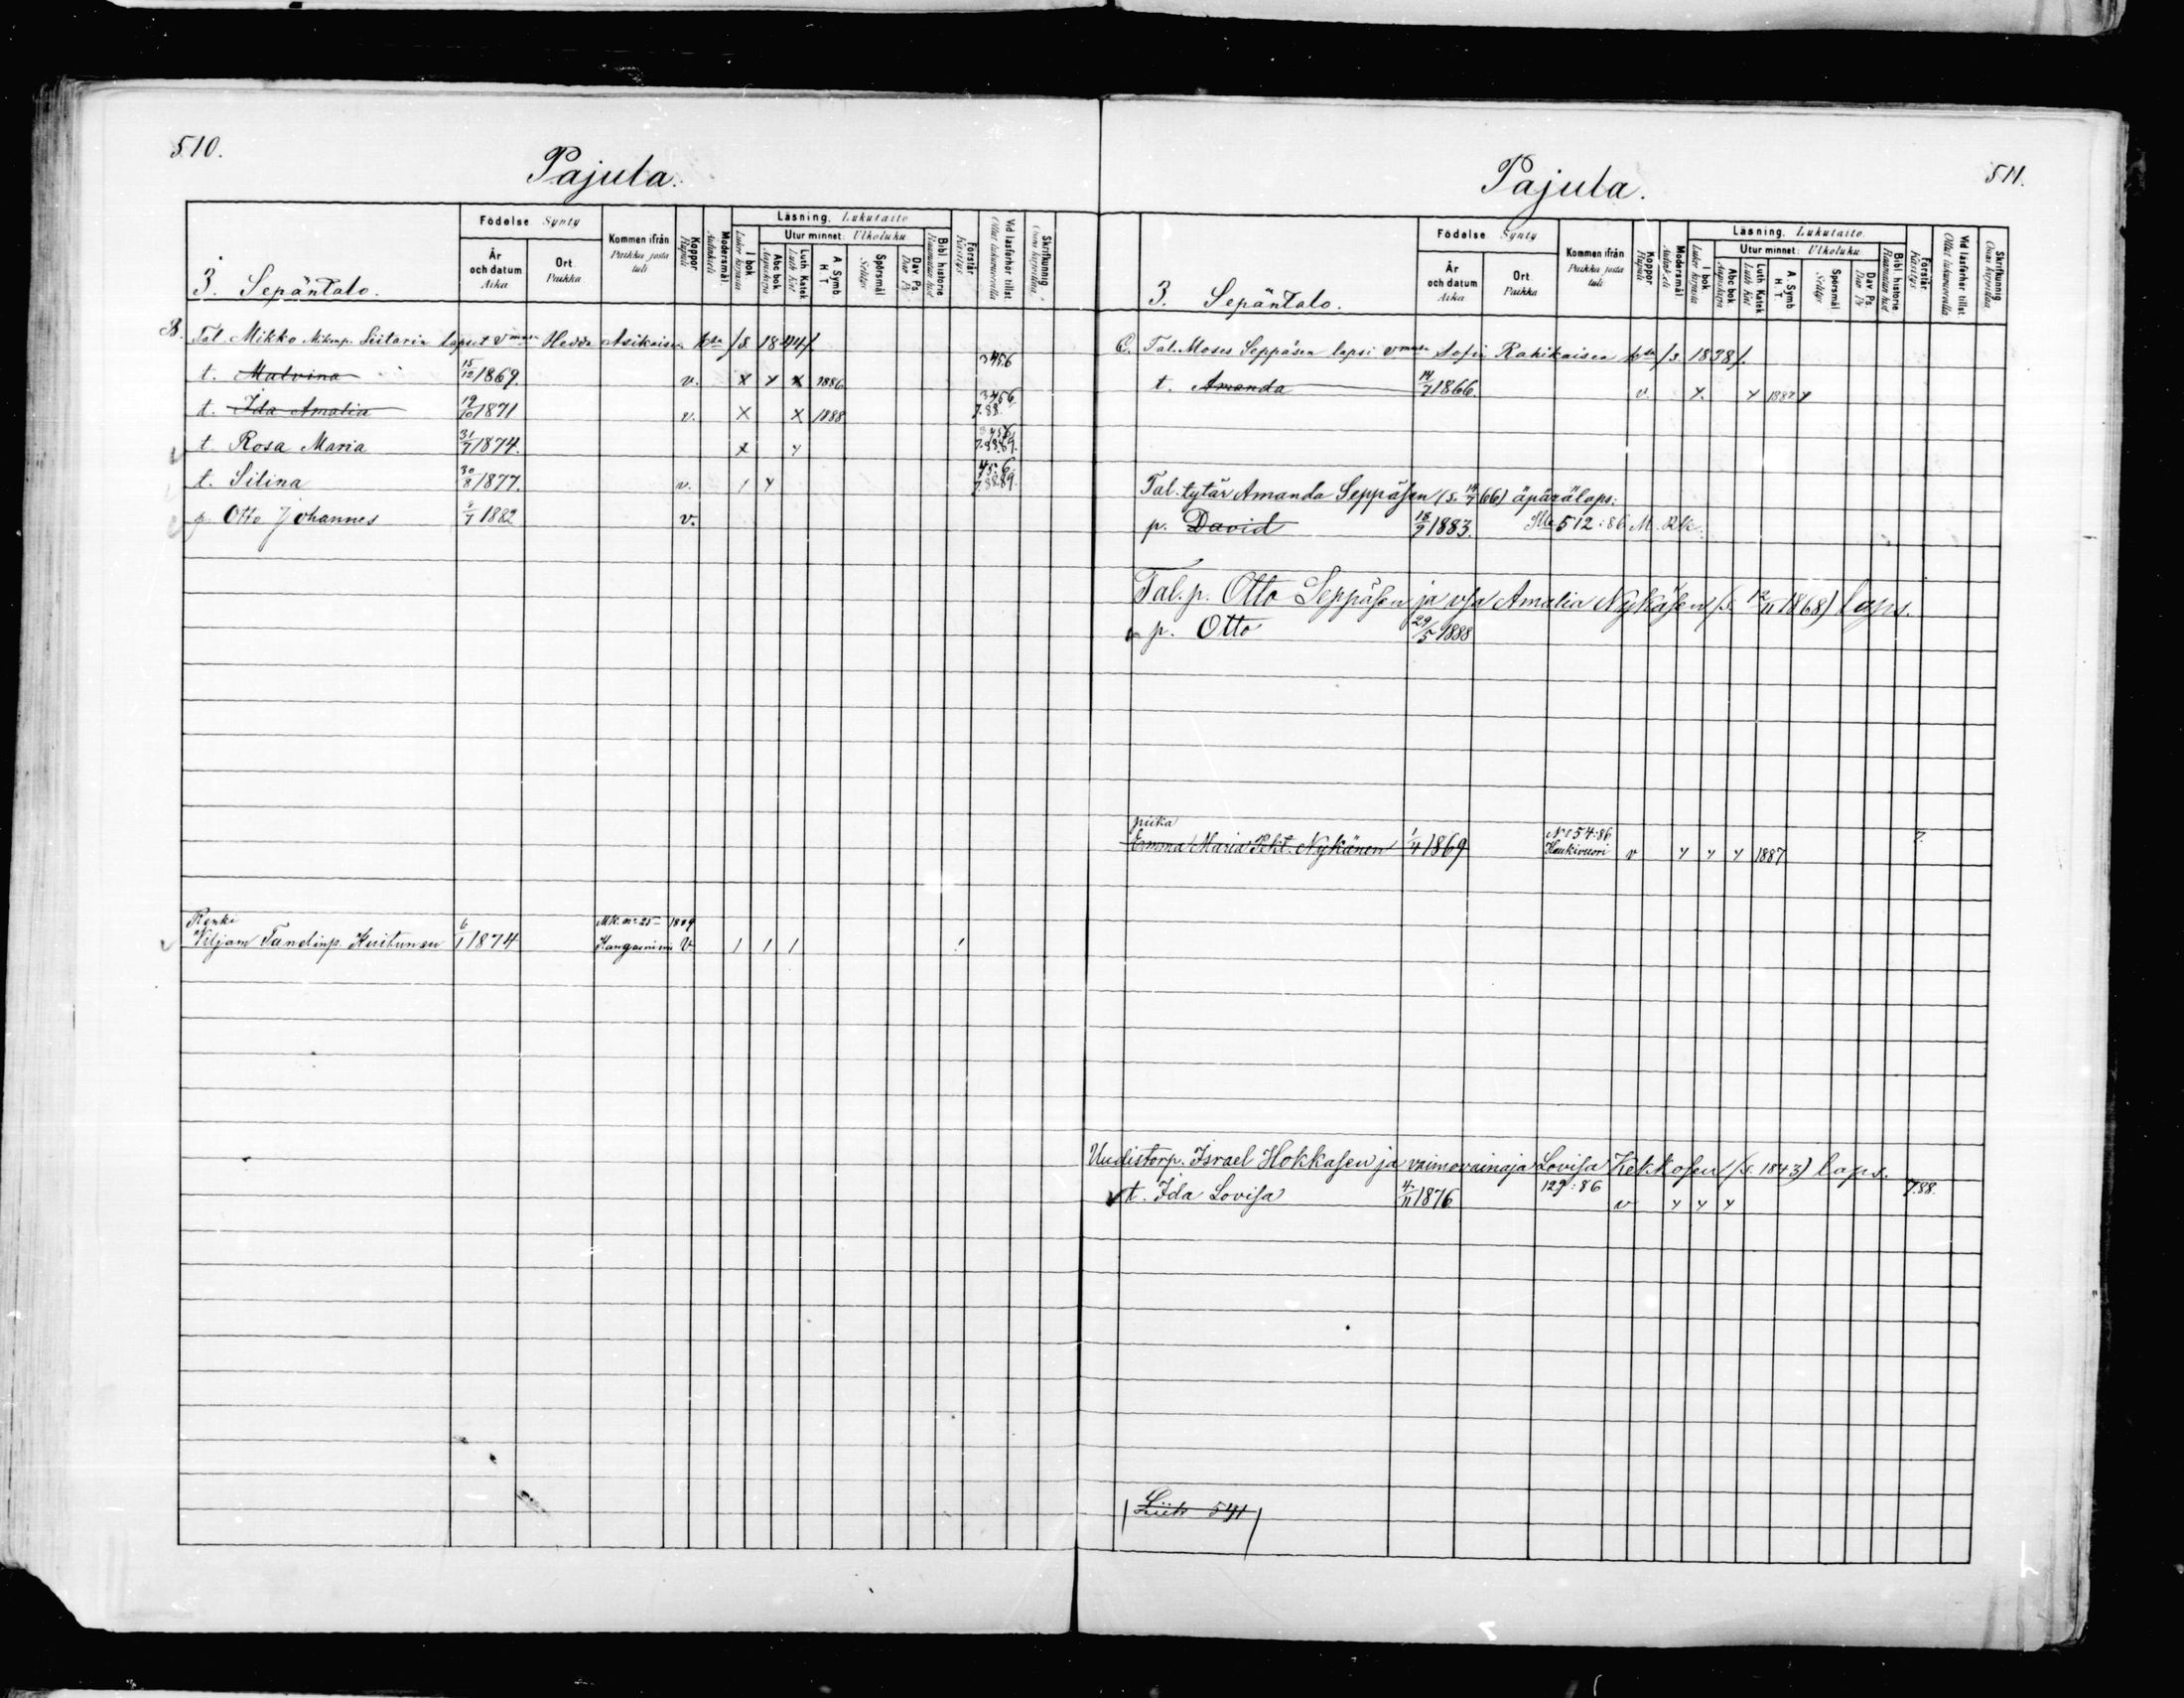 510.
Pajula.
Födelse Synty
År och datum Aika
Ort. Paikka
Kommen ifrån Paikka josta tuli
Koppor Rupuli
Modersmål Äidinkieli
Läsning. Lukutaito
I bok Lukee kirjasta
Utur minnet: Ulkoluku
Abc bok Aapiskirja
Luth. Katek Luth Kat
A. Symb H. T.
Spörsmål Selitys
Dav. Ps. Dav Ps
Bibl. historie Raamatun hist
Förstår Käsitys
Vid läsförhör tillst Ollut lukuvuorolla
Skrifkunnig Osaa kirjoittaa
3. Sepäntalo.
B. Tal. Mikko Mikonp. Siitarin lapset Vmonsa Hedda Asikaisen k:sa /s. 1844/
t. Malvina 15/12 1869. v. x y x 1886 3456
t. Ida Amalia 19/10 1871 v. x x 1888 3456 7.88.
t. Rosa Maria 31/7 1874. x y 3456 7.88.89.
t. Silina 30/8 1877. v. / y 456. 7.88.89.
p. Otto Johannes /7 1882 v.
Renki MK. nr 25 1889
Viljam Tanelinp. Kuitunen 6/1 1874 Kangasniemi v. / / / !
511.
Pajula.
Födelse Synty
År och datum Aika
Ort Paikka
Kommen ifrån Paikka josta tuli
Koppor Rupuli
Modersmål Äidinkieli
Läsning. Lukutaito.
I bok Lukee kirjasta
Utur minnet: Ulkoluku
Abc bok Aapiskirja
Luth. Katek Luth Kat
A. Symb H. T.
Spörsmål Selitys
Dav. Ps. Dav Ps
Bibl. historie Raamatun hist
Förstår Käsitys
Vid läsförhör tillst Ollut lukuvuorolla
Skrifkunnig Osaa kirjoittaa
3. Sepäntalo.
C. Tal. Moses Seppäsen lapsi vmonsa Sofia Rahikaisen k:sa /s. 1838/.
t. Amanda 14/7 1866. v. y. y 1882 y
Tal. tytär Amanda Seppäsen (s. 14/7 66) äpärälaps:
p. David 18/9 1883. Mk 512:86 M. Rk.
Tal. p. Otto Seppäsen ja vsa Amalia Nykäsen (s. 12/11 1868) laps.
p. Otto 29/5 1888
piika No 54:86
Emma Maria Pekt. Nykänen 1/4 1869 Haukivuori v y y y 1887 7.
Uudistorp. Israel Hokkasen ja vaimovainaja Lovisa Kekkosen (s. 1843) laps.
t. Ida Lovisa 4/11 1876 129:86 v y y y 7.88.
Siirt 541